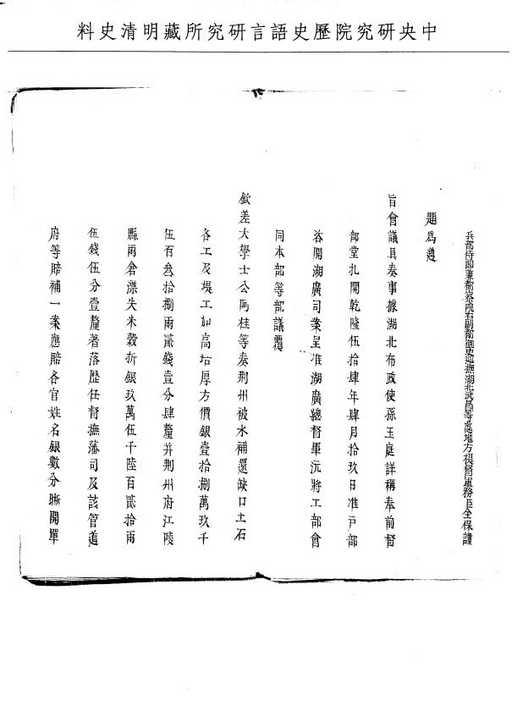 中央研究院歷史語言研究所藏明清史料
兵部侍郎兼都察院右副都御史巡撫湖北武昌等處地方提督軍務臣全保謹
題為遵
旨會議具奏事據湖北布政使孫玉庭詳稱奉前督
部堂札開乾隆伍拾肆年肆月拾玖日准戶部
咨開湖廣司案呈准湖廣總督畢沅將工部會
同本部等部議覆
欽差大學士公阿桂等奏荊州被水補還缺口土石
各工及堤工加高培厚方價銀壹拾捌萬玖千
伍百叁拾捌兩貳錢壹分肆釐并荊州府江陵
縣兩倉漂失米穀折銀玖萬伍千陸百貳拾兩
伍錢伍分壹釐著落歷任督撫藩司及該管道
府等賠補一案應賠各官姓名銀數分晰開單